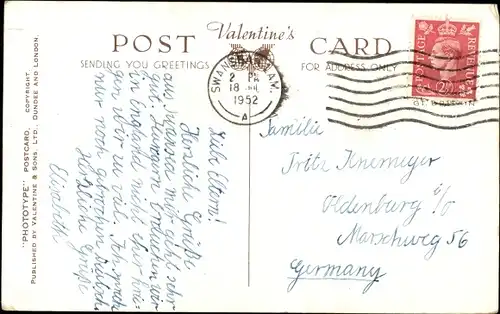 POST Valentine's CARD
SENDING YOU GREETINGS
FOR ADDRESS ONLY
SWANSEA
2 PM
18 JUL
1952
A
POSTAGE REVENUE
"PHOTOTYPE" POSTCARD. COPYRIGHT.
PUBLISHED BY VALENTINE & SONS, LTD., DUNDEE AND LONDON.
Liebe Eltern!
Herzliche Grüße
aus Swansea mir geht sehr
gut.
in England nicht
gen wir zu viel. Ich
nur noch gebrochen
Herzliche Grüße
Elizabeth
Familie
Fritz Knemeyer
Oldenburg i/O
Marschweg 56
Germany